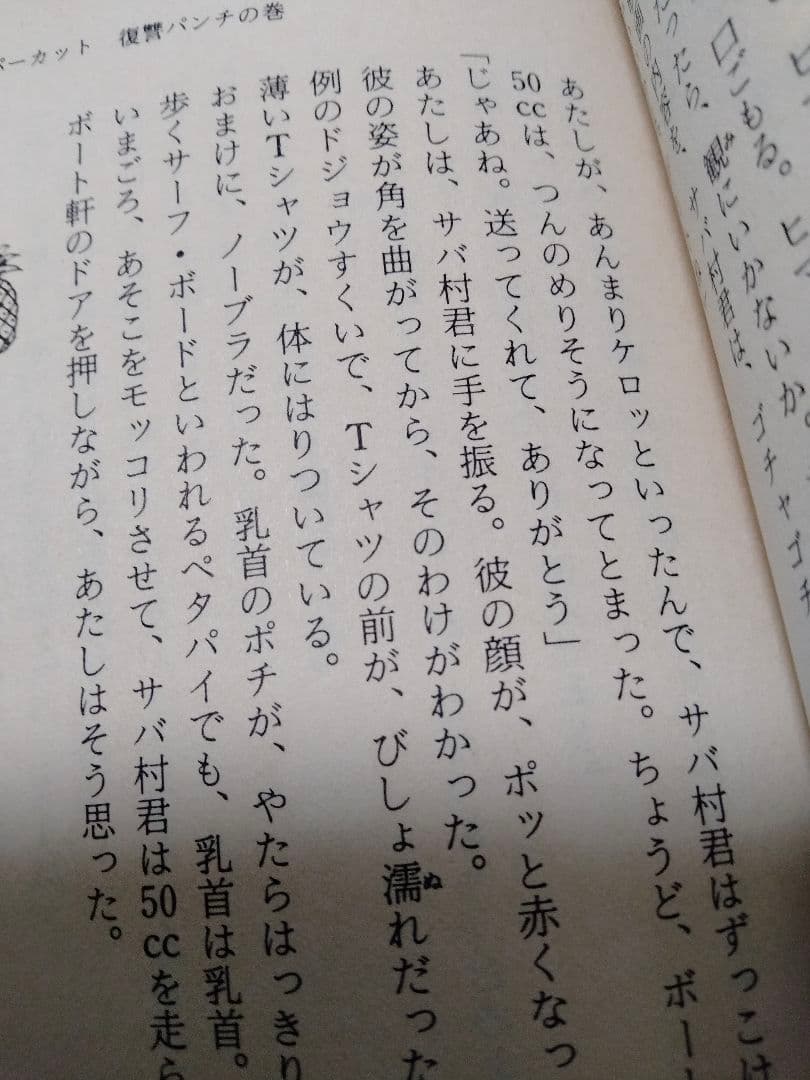 ごもる。
観にいかないか。
ったら、
サバ村君は、ゴチャゴチ
パーカット 復讐パンチの巻
あたしが、あんまりケロッといったんで、サバ村君はずっこけ
50ccは、つんのめりそうになってとまった。ちょうど、ボー
「じゃあね。送ってくれて、ありがとう」
あたしは、サバ村君に手を振る。彼の顔が、ポッと赤くなっ
彼の姿が角を曲がってから、そのわけがわかった。
例のドジョウすくいで、Tシャツの前が、びしょ濡れだった
薄いTシャツが、体にはりついている。
おまけに、ノーブラだった。乳首のポチが、やたらはっきり
歩くサーフ・ボードといわれるペタパイでも、乳首は乳首。
いまごろ、あそこをモッコリさせて、サバ村君は50ccを走ら
ボート軒のドアを押しながら、あたしはそう思った。